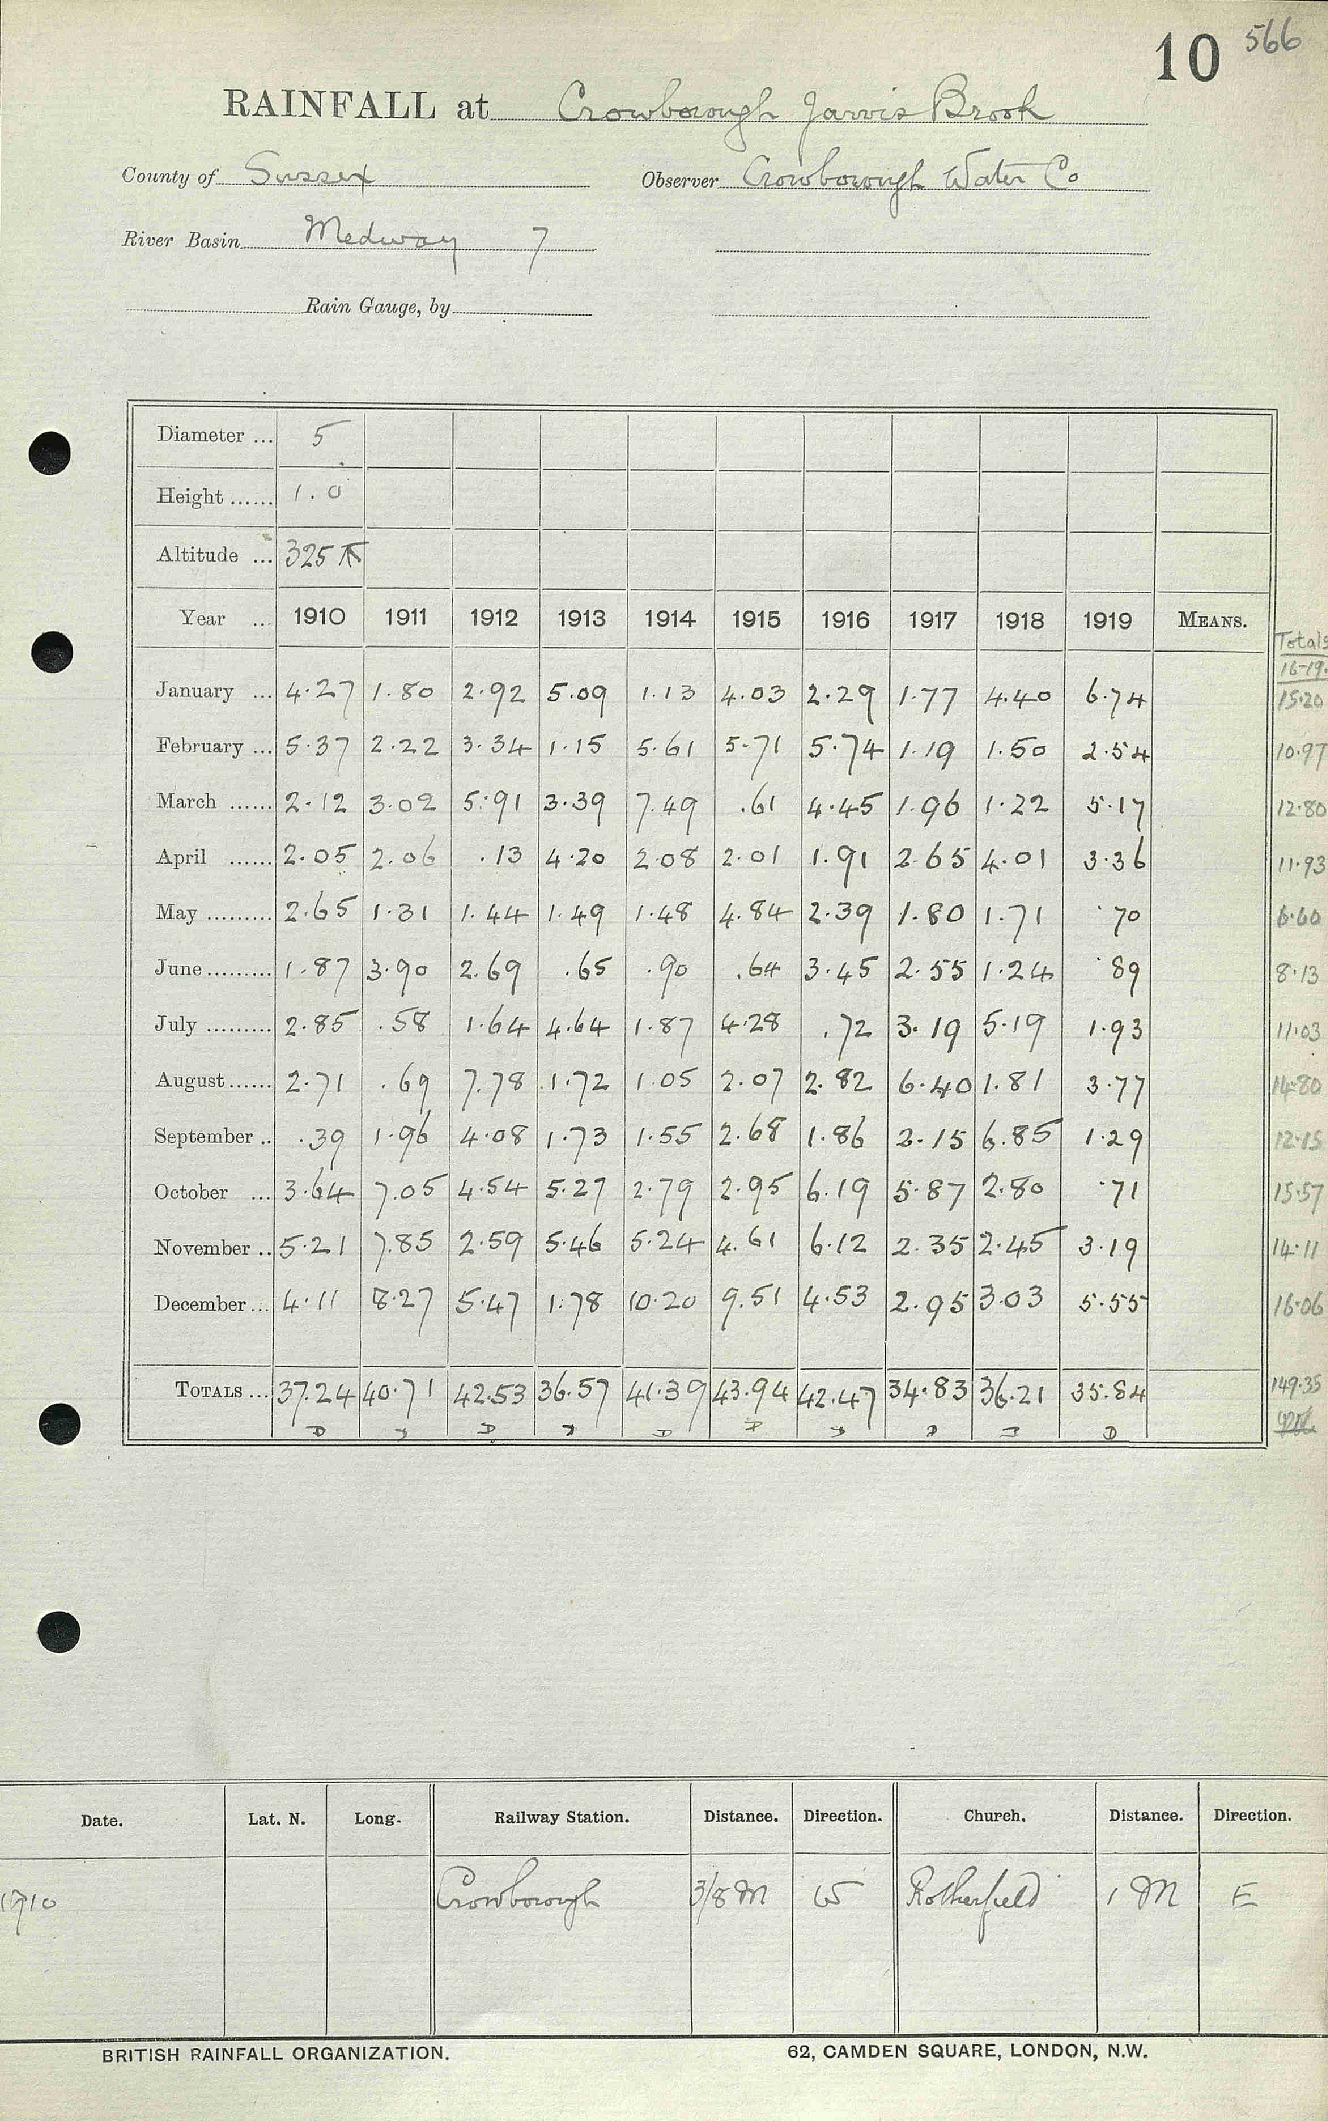 10 566
RAINFALL at Crowborough Jarvis Brook
County of Sussex Observer Crowborough Water Co
River Basin Medway 7
Rain Gauge, by
Diameter ... 5
Height ...... 1.0
Altitude ... 325
Year ... 1910 1911 1912 1913 1914 1915 1916 1917 1918 1919 MEANS.
Totals
16-19.
January ... 4.27 1.80 2.92 5.09 1.13 4.03 2.29 1.77 4.40 6.74 15.20
February ... 5.37 2.22 3.34 1.15 5.61 5.71 5.74 1.19 1.50 2.54 10.97
March ...... 2.12 3.02 5.91 3.39 7.49 .61 4.45 1.96 1.22 5.17 12.80
April ...... 2.05 2.06 .13 4.20 2.08 2.01 1.91 2.65 4.01 3.36 11.93
May ......... 2.65 1.31 1.44 1.49 1.48 4.84 2.39 1.80 1.71 .70 6.60
June ......... 1.87 3.90 2.69 .65 .90 .64 3.45 2.55 1.24 .89 8.13
July ......... 2.85 .58 1.64 4.64 1.87 4.28 .72 3.19 5.19 1.93 11.03
August ...... 2.71 .69 7.78 1.72 1.05 2.07 2.82 6.40 1.81 3.77 14.80
September .. .39 1.96 4.08 1.73 1.55 2.68 1.86 2.15 6.85 1.29 12.15
October ... 3.64 7.05 4.54 5.27 2.79 2.95 6.19 5.87 2.80 .71 15.57
November .. 5.21 7.85 2.59 5.46 5.24 4.61 6.12 2.35 2.45 3.19 14.11
December ... 4.11 8.27 5.47 1.78 10.20 9.51 4.53 2.95 3.03 5.55 16.06
TOTALS ... 37.24 40.71 42.53 36.57 41.39 43.94 42.47 34.83 36.21 35.84 149.35
Date. Lat. N. Long. Railway Station. Distance. Direction. Church. Distance. Direction.
1910 Crowborough 3/8 M W Rotherfield 1 M E
BRITISH RAINFALL ORGANIZATION. 62, CAMDEN SQUARE, LONDON, N.W.